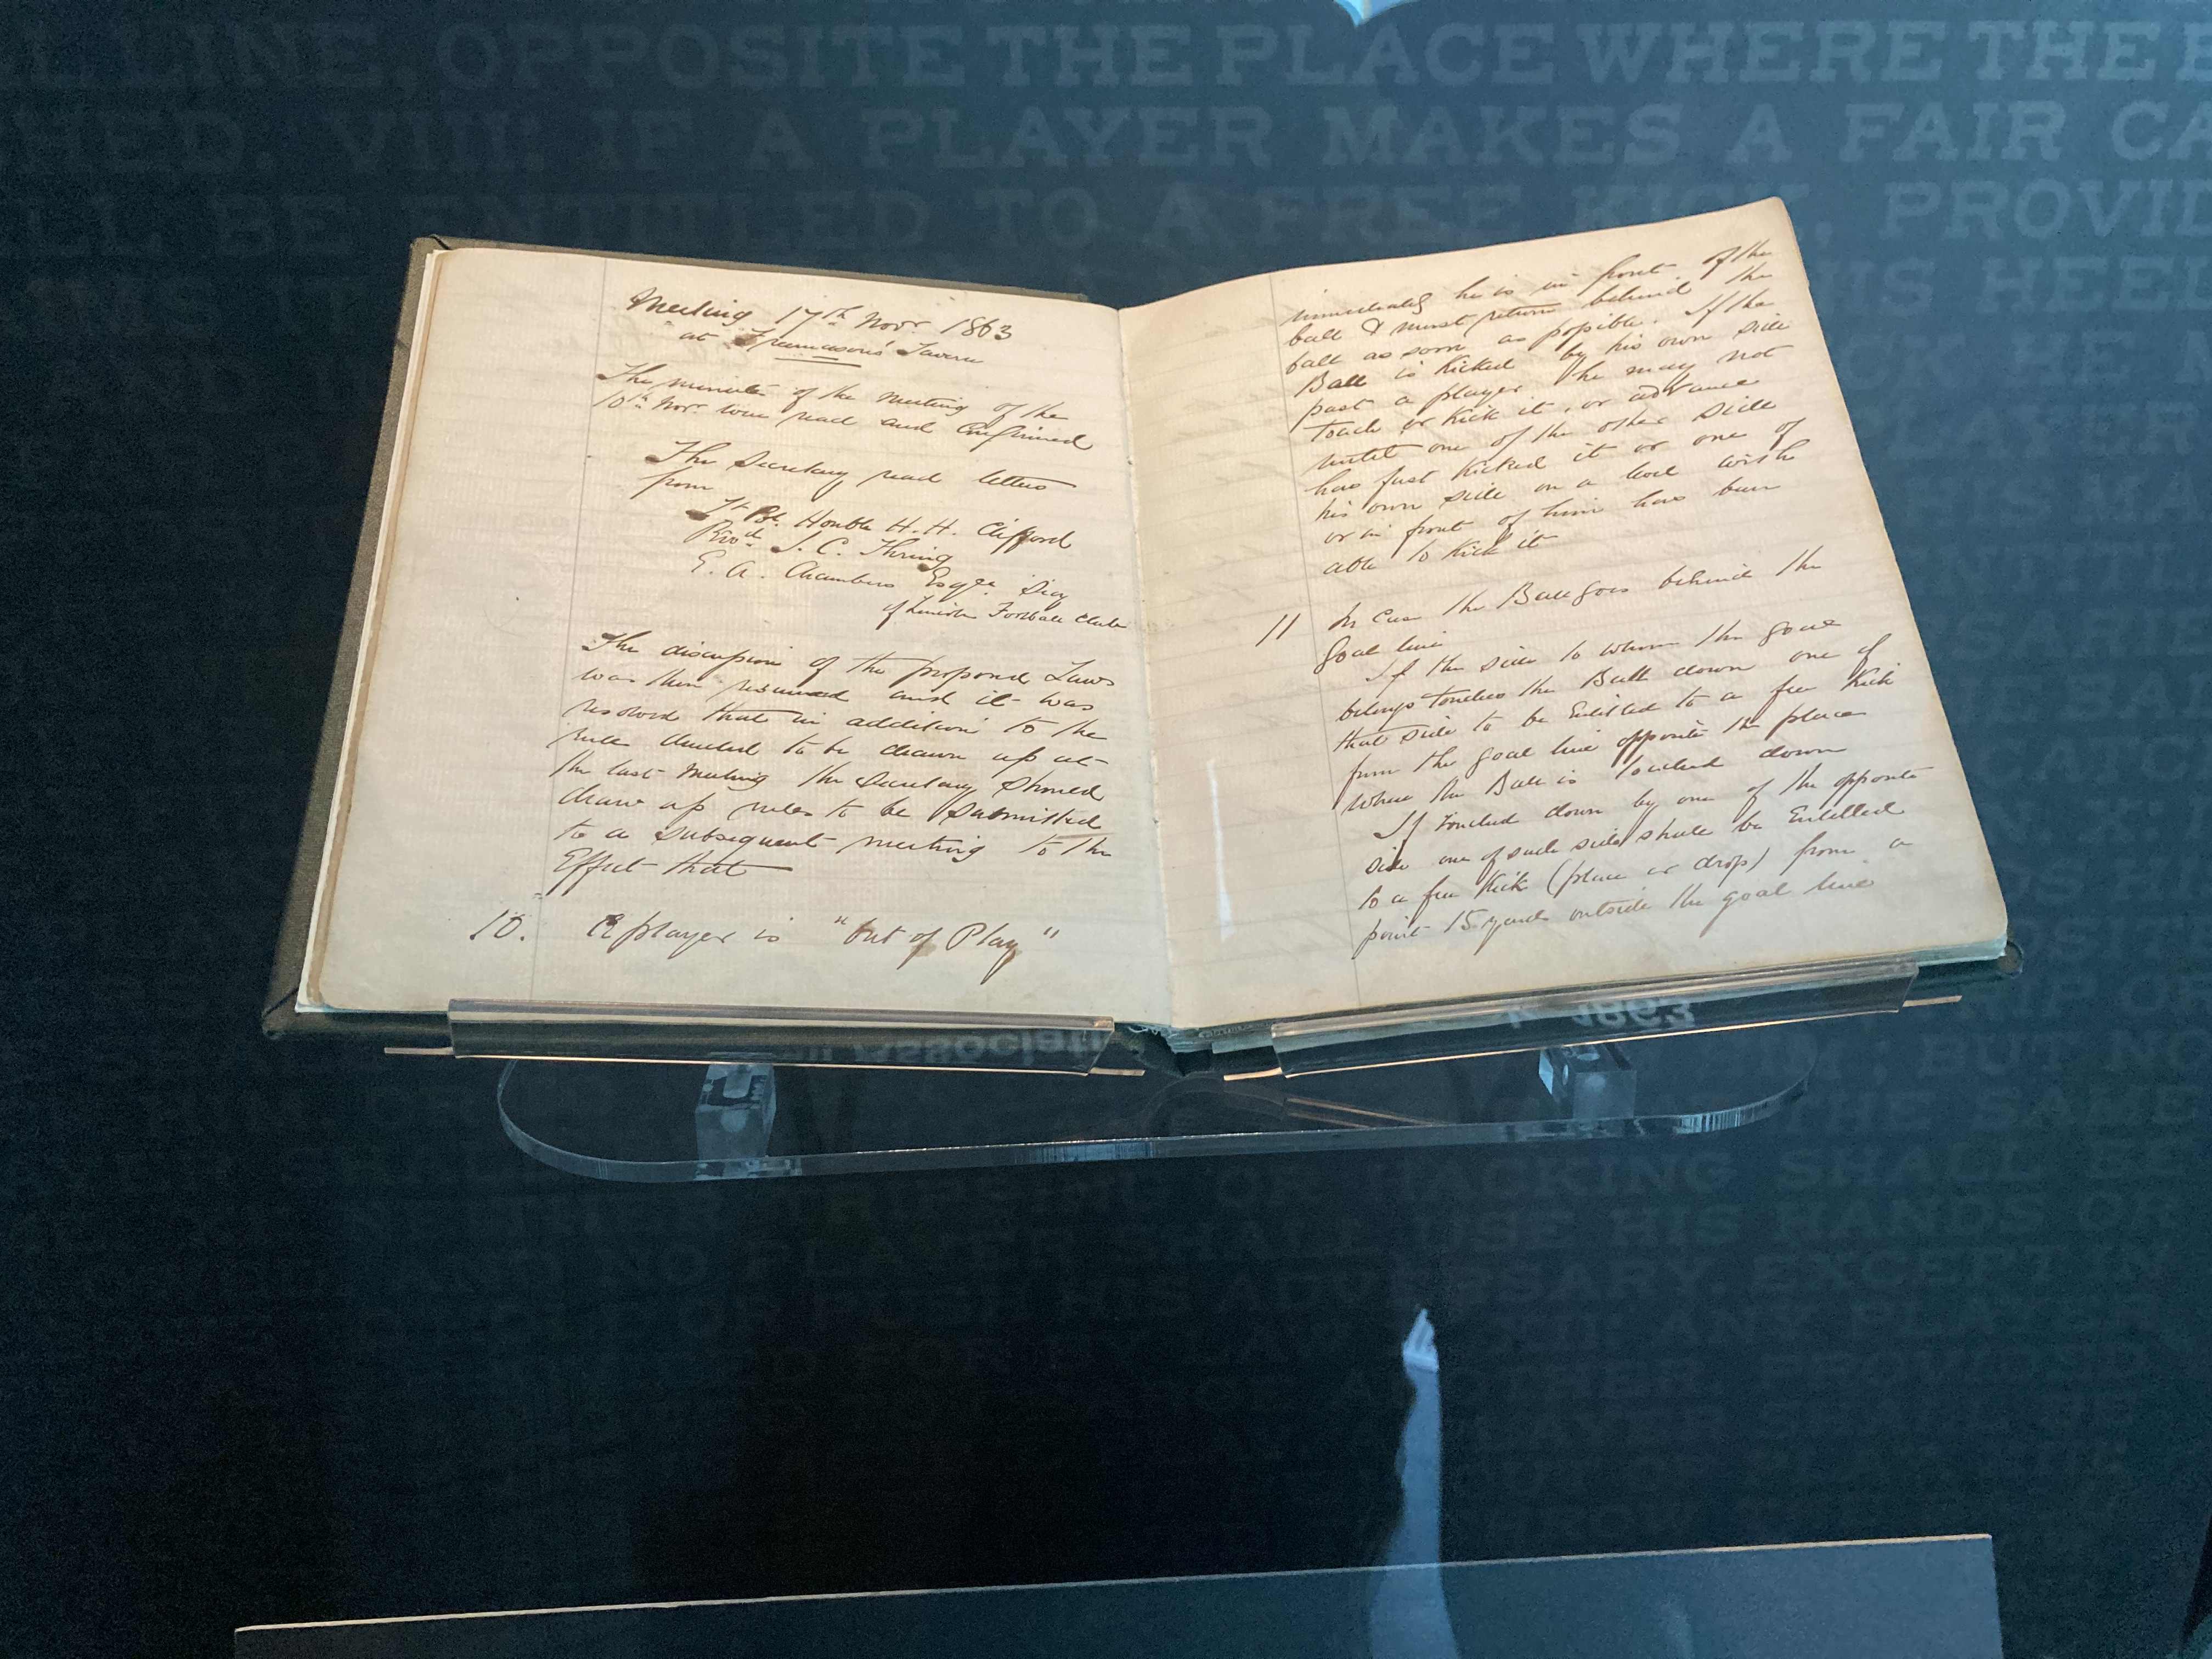 L LINE, OPPOSITE THE PLACE WHERE THE B
HED. VIII: IF A PLAYER MAKES A FAIR CA
LL BE ENTITLED TO A FREE KICK, PROVID
HIS HEE
Meeting 17th Novr. 1863
at Freemason's Tavern
The minutes of the Meeting of the
10th Novr. were read and Confirmed
The Secretary read letters
from
Lt Honble H. H. Clifford
Revd J. C. Thring
E. A. Chambers Esqre Secy
of Lincoln Football Club
The discussion of the proposed Laws
was then resumed and it was
resolved that in addition to the
rule directed to be drawn up at
the last Meeting the Secretary should
draw up rules to be submitted
to a subsequent meeting to the
Effect that
10. A player is "Out of Play"
immediately he is in front of the
ball & must return behind the
ball as soon as possible. If the
Ball is kicked by his own side
past a player he may not
touch or kick it, or advance
until one of the other side
has first kicked it or one of
his own side on a level with
or in front of him has been
able to kick it
11 In Case the Ball goes behind the
goal line
If the side to whom the goal
belongs touches the Ball down one of
that side to be Entitled to a free Kick
from the goal line opposite the place
where the Ball is touched down
If touched down by one of the opposite
side one of such side shall be Entitled
to a free Kick (place or drop) from a
point 15 yards outside the goal line
Associati
1863
BUT NO
THE SAME
NEITHER TRIPPING OR HACKING SHALL BE
AND NO PLAYER SHALL USE HIS HANDS OR
OR PUSH HIS ADVERSARY, EXCEPT IN
ANY PLAYER